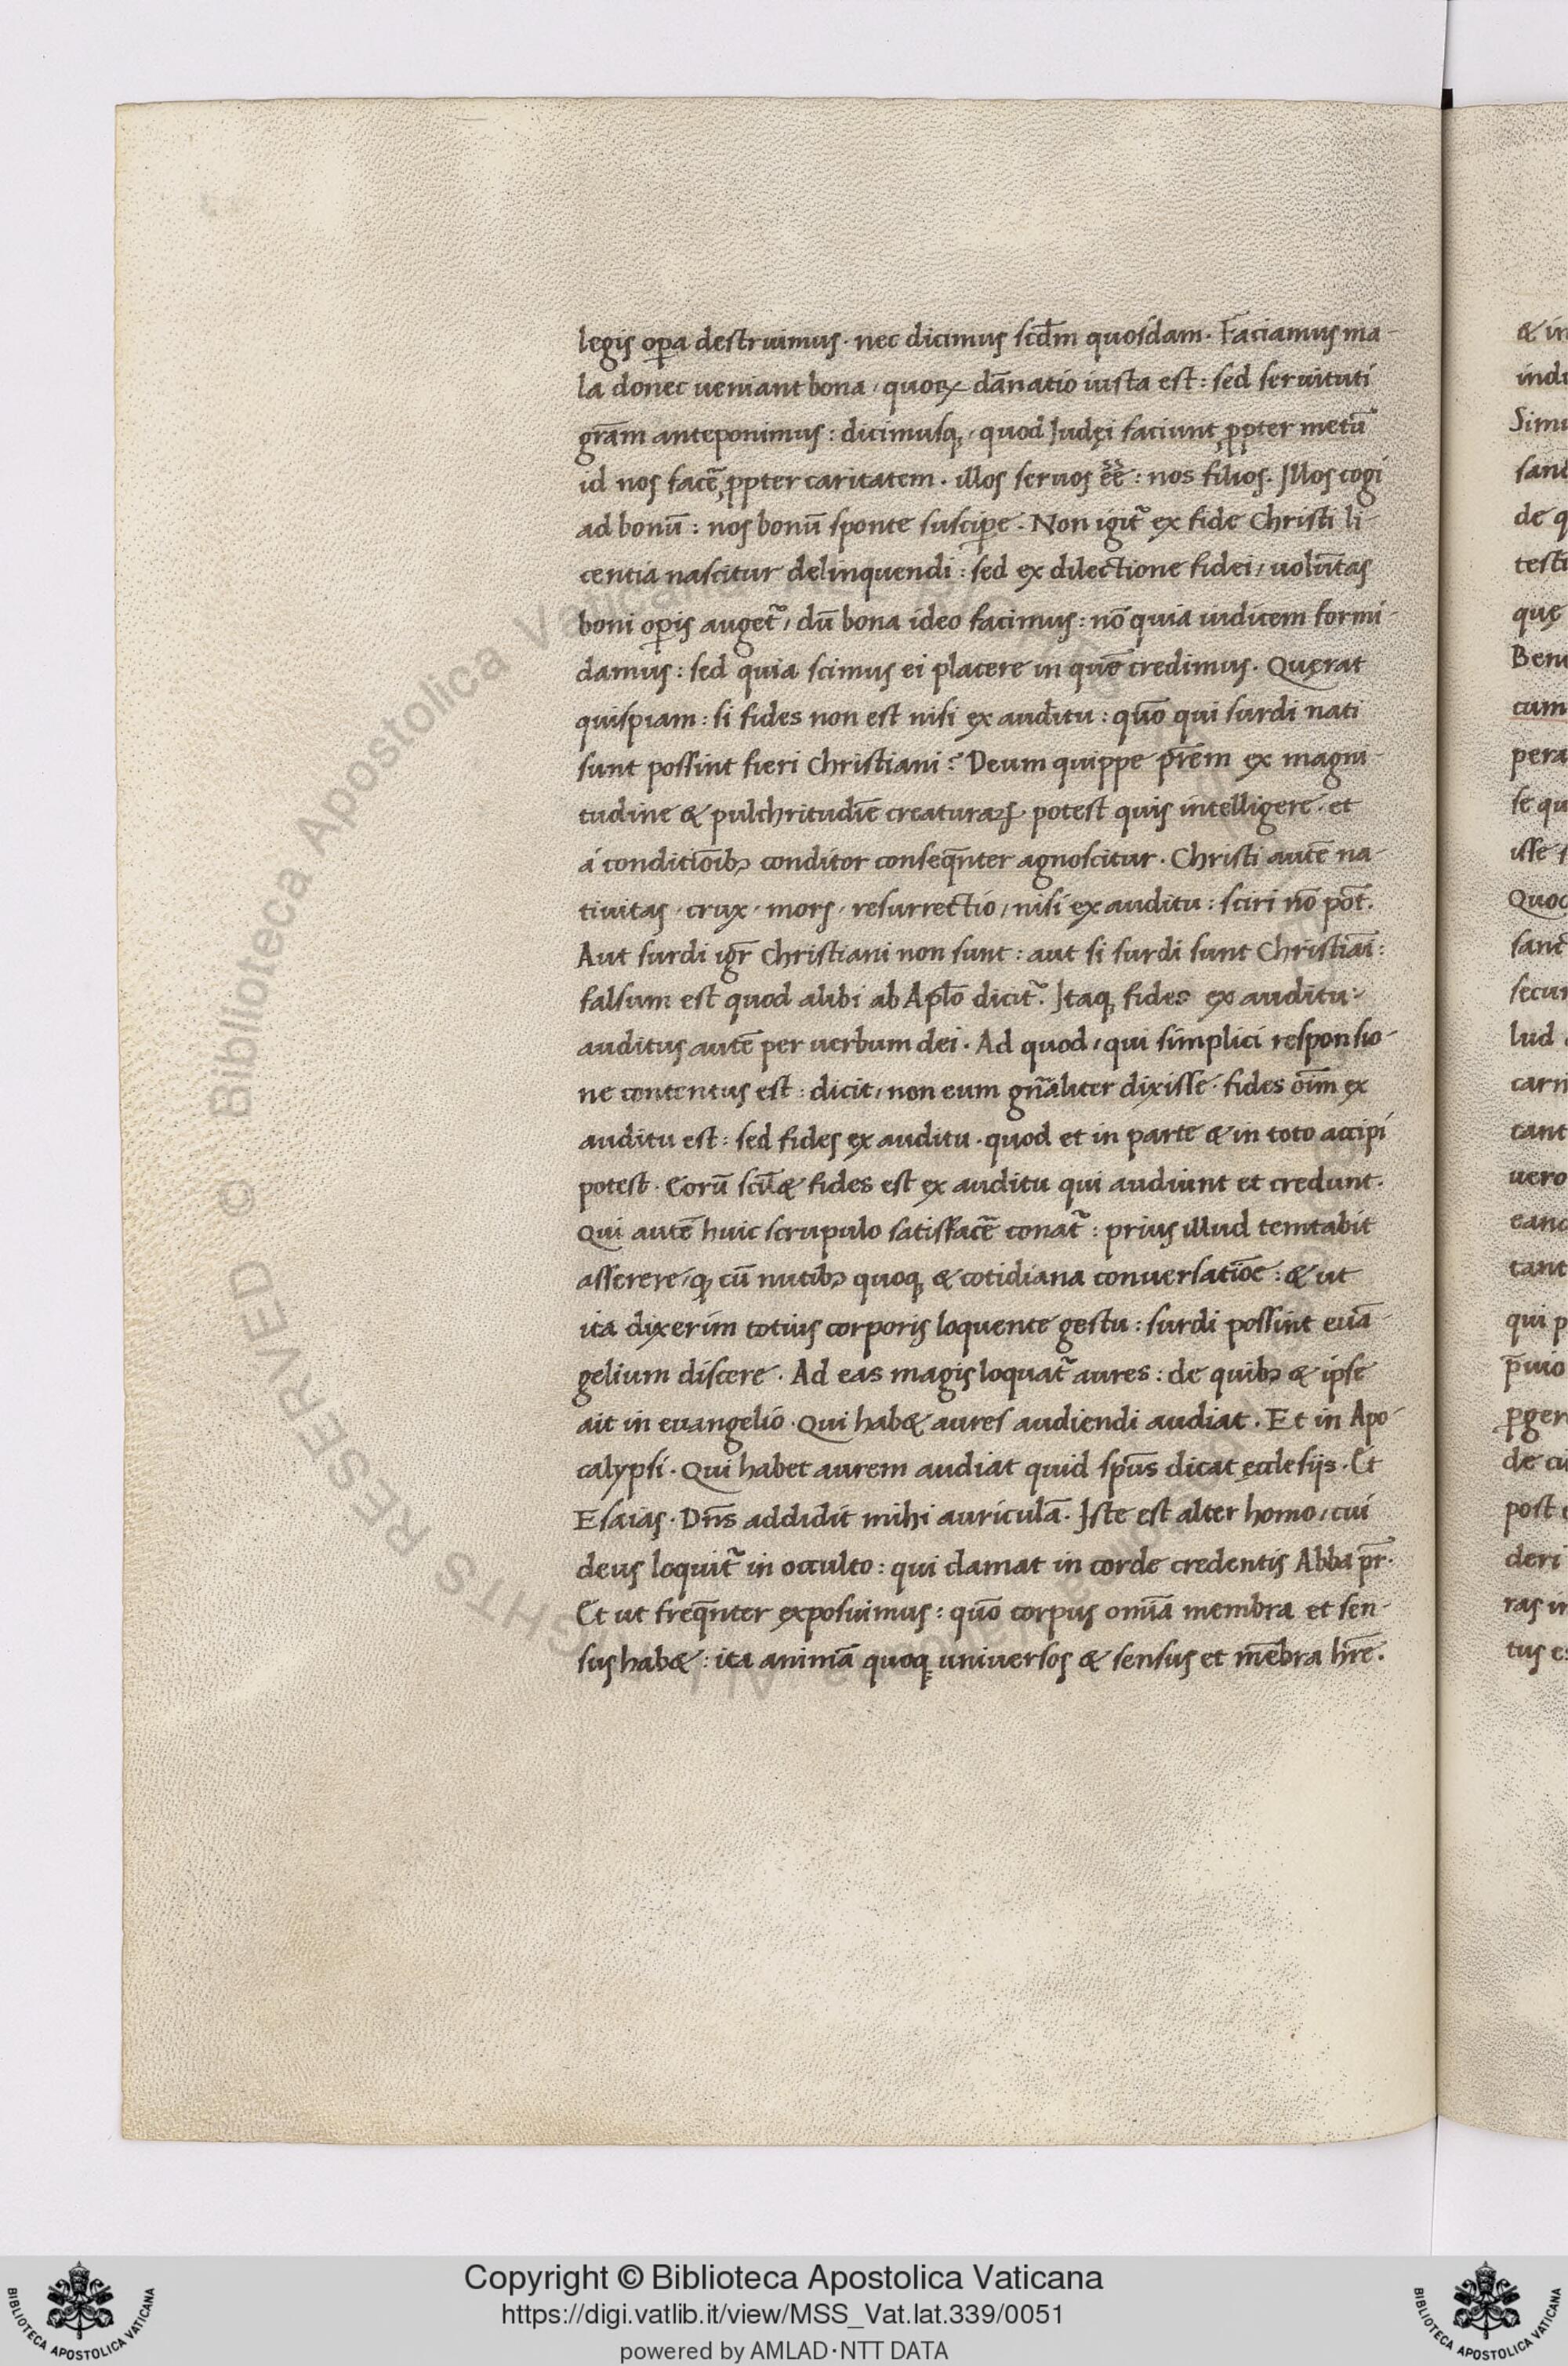 legis oꝑa destruimus · nec dicimus scd̄m quosdam · Faciamus ma-
la donec ueniant bona , quoꝝ dānatio iusta est : sed seruituti
grām anteponimus : dicimusq; , quod Judęi faciunt ꝓpter metū
id nos facē ꝓpter caritatem . illos seruos ēē : nos filios . Jllos cogi
ad bonū : nos bonū sponte susciꝑe . Non igit᷑ ex fide Christi li-
centia nascitur delinquendi : sed ex dilectione fidei , uolūtas
boni oꝑis auget᷑ , dū bona ideo facimus : nō quia iudicem formi-
damus : sed quia scimus ei placere in quē credimus . Quęrat
quispiam : si fides non est nisi ex auditu : quō qui surdi nati
sunt possint fieri Christiani ? Deum quippe pr̄em ex magni-
tudine & pulchritudīe creaturaꝝ potest quis intelligere · et
á conditiōibꝫ conditor conseq̄nter agnoscitur . Christi autē na-
tiuitas · crux · mors · resurrectio , nisi ex auditu : sciri nō pōt .
Aut surdi igr̄ Christiani non sunt : aut si surdi sunt Christiāi :
falsum est quod alibi ab Aplō dicit᷑ . Jtaq; fides ex auditu :
auditus autē per uerbum dei . Ad quod , qui simplici responsio-
ne contentus est : dicit , non eum gn̄aliter dixisse · fides oīm ex
auditu est : sed fides ex auditu · quod et in parte & in toto accipi
potest . Eorū scil& fides est ex auditu qui audiunt et credunt .
Qui autē huic scrupulo satisfacē conat᷑ : prius illud temtabit
asserere , q; cū nutibꝫ quoq; & cotidiana conuersatiōe : & ut
ita dixerim totius corporis loquente gestu : surdi possint euā-
gelium discere . Ad eas magis loquat᷑ aures : de quibꝫ & ipse
ait in euangelio · Qui hab& aures audiendi audiat . Et in Apo-
calypsi . Qui habet aurem audiat quid sp̄us dicat ęcclesijs . Et
Esaias . Dn̄s addidit mihi auriculā . Jste est alter homo , cui
deus loquit᷑ in occulto : qui clamat in corde credentis Abba pr̄ .
Et ut freq̄nter exposuimus : quō corpus omīa membra et sen-
sus hab& : ita animā quoq; uniuersos & sensus et mēbra hr̄e .
& in
indu
Simu
sanc
de q
testi
quę
Beni
cum
pera
se qu
isse
Quod
sanc
secun
lud
carn
tant
uero
eand
tant
qui p
p̄uio
ꝑger
de cu
post
deri
ras in
tus es
© Biblioteca Apostolica Vaticana
ALL RIGHTS RESERVED
Copyright © Biblioteca Apostolica Vaticana
https://digi.vatlib.it/view/MSS_Vat.lat.339/0051
powered by AMLAD·NTT DATA
BIBLIOTECA APOSTOLICA VATICANA
BIBLIOTECA APOSTOLICA VATICANA